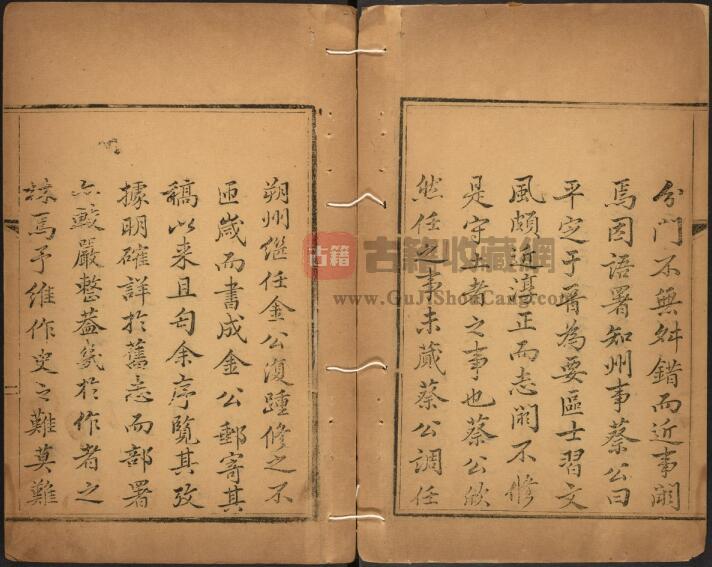 分門不無舛錯而近事闕
焉因語署知州事蔡公曰
平定于晋為要區士習文
風頗近淳正而志闕不修
是守土者之事也蔡公欣
然任之事未蕆蔡公調任
朔州継任金公復踵修之不
匝歲而書成金公郵寄其
稿以来且匄余序覧其攷
據明確詳於舊志而部署
亦較嚴整葢㡬於作者之
林焉予維作史之難莫難
古籍
古籍收藏網
www.GuJiShouCang.com